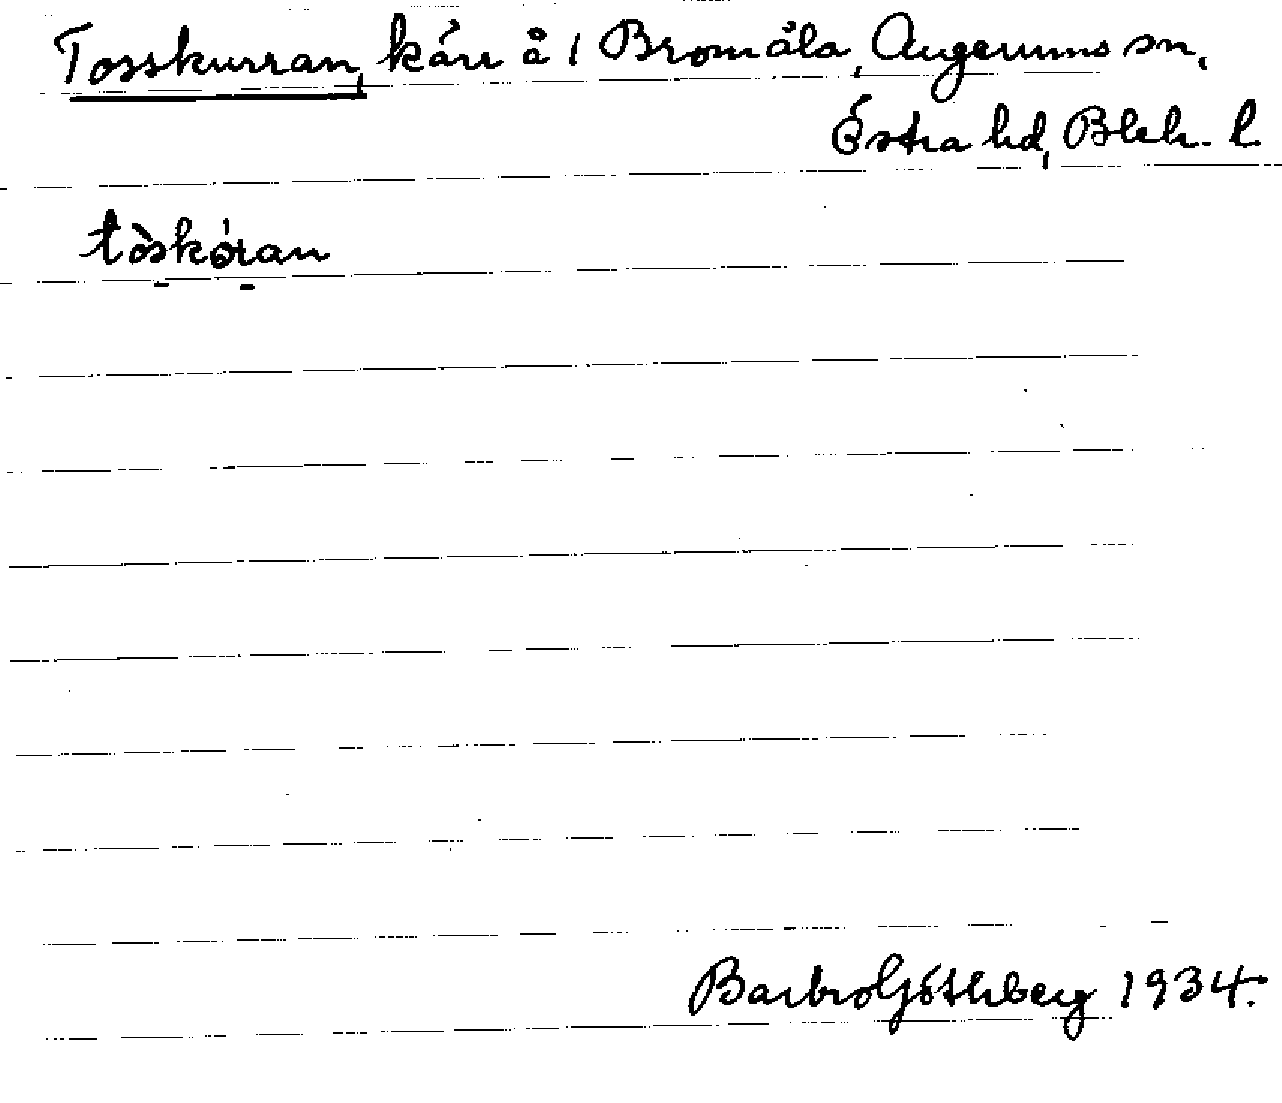 Tosskurran, kärr å 1 Bromåla, Augerums sn,
Östra hd, Blek. l.
tòskóran
Barbro Göthberg 1934.